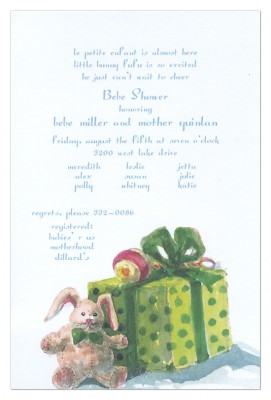 le petite enfant is almost here
little bunny fufu is so excited
he just can't wait to cheer
Bebe Shower
honoring
bebe miller and mother quinlan
friday, august the fifth at seven o'clock
3200 west lake drive
meredith leslie jetta
alex susan jolie
polly whitney katie
regrets, please 332-0086
registered:
babies' r us
motherhood
dillard's